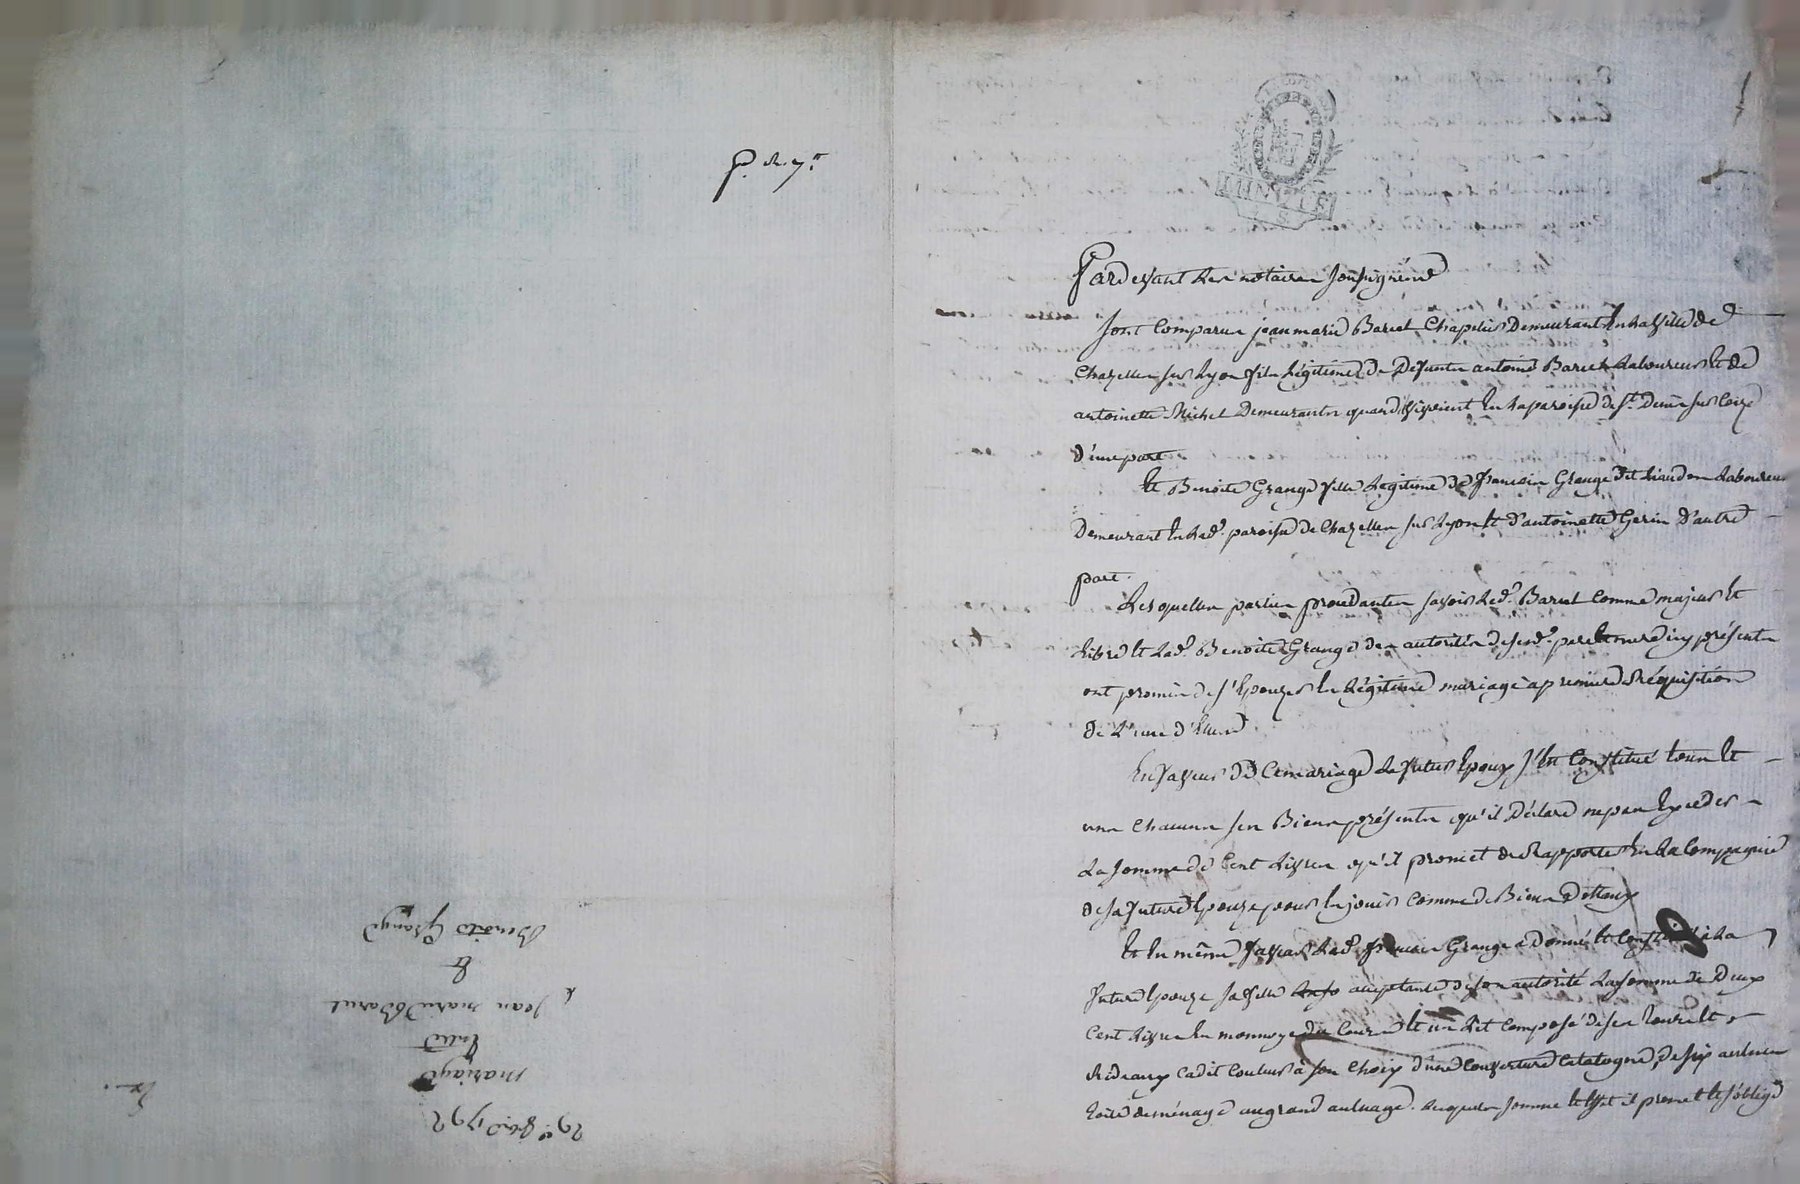 Pardevant Les notaires soussignés
sont comparus jean marie Barcel Chapelier Demeurant En la ville de
Chazelles sur Lyon fils Légitime de Defunts antoine Barcel Laboureur Et de
antoinette Michel Demeurants quand vivoient En la paroisse de St. Denis sur Coize
d'une part
Et Benoite Grange fille Légitime de francois Grange dit Liaudon Laboureur
Demeurant En lad. paroisse de Chazelles sur Lyon Et d'antoinette Gerin D'autre
part.
Lesquelles parties procedantes savoir Led. Barcel Comme majeur Et
Libre Et Lad. Benoite Grange des autorités de sesd. pere Et mere icy présents
ont promis de s'Epouzer En Légitime mariage a premiere Réquisition
de L'une d'Elles
En faveur de Ce mariage Le futur Epoux s'Est Constitué tous Et
uns Chacuns ses Biens présents qu'il Déclare ne pas Exceder
La somme de Cent Livres qu'il promet de Rapporter En La Compagnie
de sa future Epouze pour En jouir Comme de Biens Dotaux
Et En même faveur Led. francois Grange a Donné Et Constitué à La
future Epouze sa fille acceptante de son autorité La somme de Deux
Cent Livres En monnoye du Cours Et un Lit Composé de ses tours Et
Rideaux Cadit Couleur à son Choix d'une Couverture Catalogne, de six aulnes
toile de ménage au grand aulnage. Lesquels somme Et Lit il promet Et s'oblige
29e. 1792
mariage
Entre
Jean marie Barcel
&
Benoite Grange